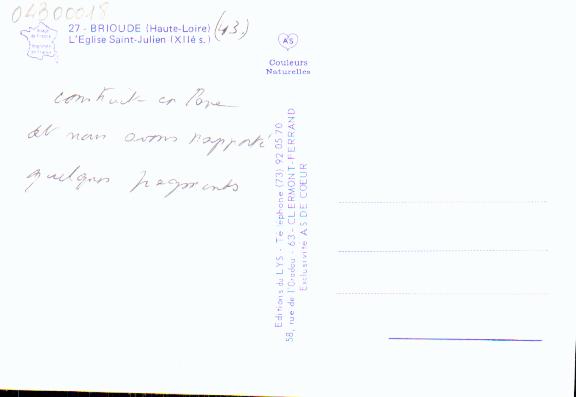 04300018
27 - BRIOUDE (Haute-Loire) (43)
L'Eglise Saint-Julien (XIIè s.)
AS
Couleurs
Naturelles
et nous avons rapporté
quelques fragments
Editions du LYS - Téléphone (73) 92 05 70
58, rue de l'Oradou - 63 - CLERMONT-FERRAND
Exclusivité AS DE COEUR